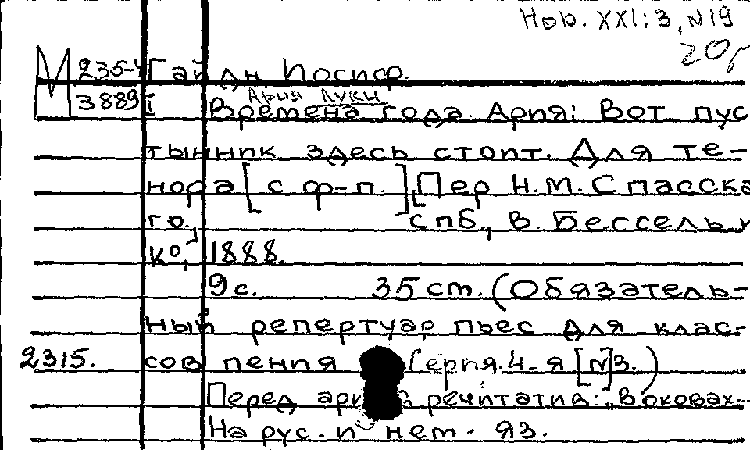 Нов. XXI:3, N19
20,
М 235-4 Гайдн Иосиф.
3889 I Ария Луки
Времена года. Ария: Вот пус-
тынник здесь стоит. Для те-
нора [с ф-п.]. [Пер Н.М. Спасско
го, спб, В. Бессель и
ко, 1888.
9 с. 35 cm. (Обязатель-
ный репертуар пьес для клас-
2315. сов пения Серия 4-я [N]3.)
Перед арией речитатив:
На рус. и нем. яз.